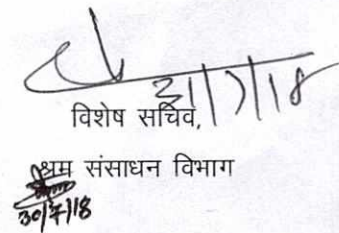 31/7/18
विशेष सचिव,
श्रम संसाधन विभाग
30/7/18